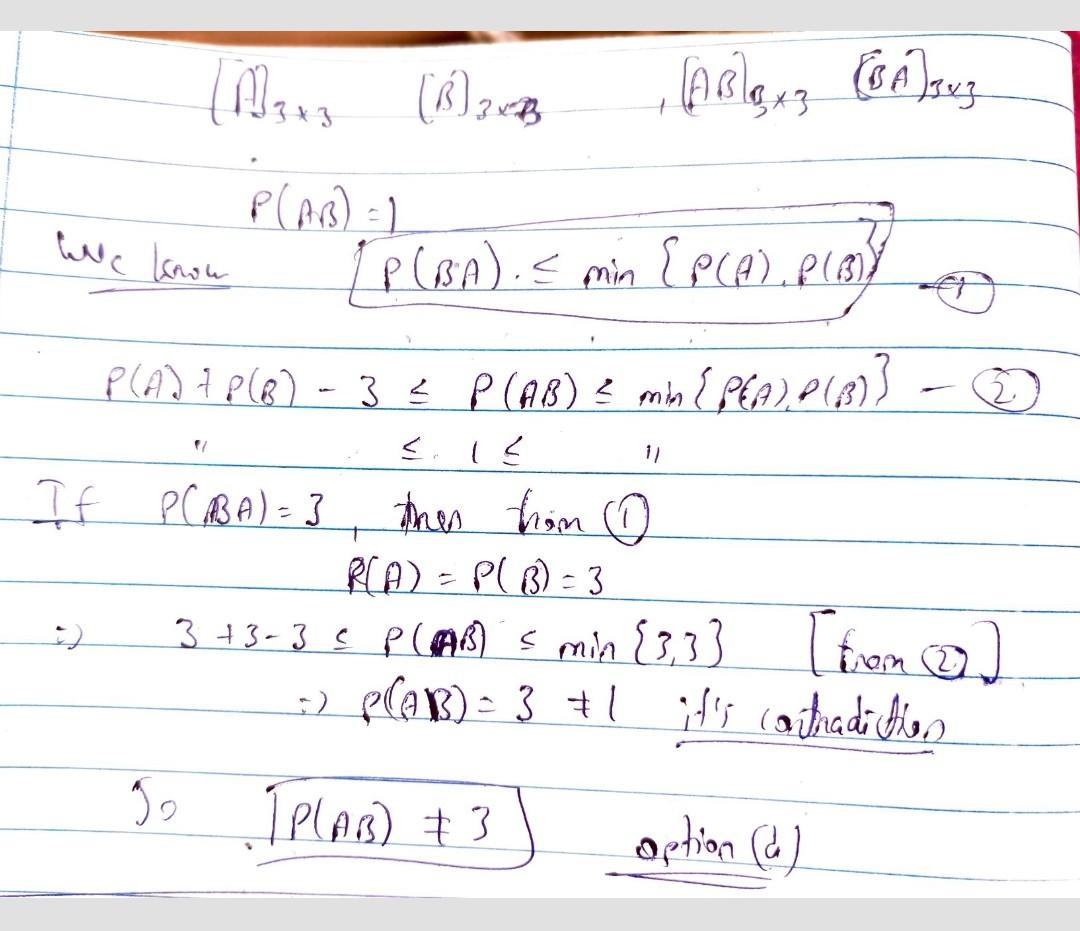 [A]3×3 [B]3×3 , [AB]3×3 [BA]3×3
P(AB) = 1
We know [P(BA) . ≤ min {P(A), P(B)}] - ①
P(A) + P(B) - 3 ≤ P(AB) ≤ min {P(A), P(B)} - ②
" ≤ . 1 ≤ "
If P(BA) = 3 , then from ①
P(A) = P(B) = 3
=) 3 + 3 - 3 ≤ P(AB) ≤ min {3,3} [from ②]
=) P(AB) = 3 ≠ 1 it's contradiction
So [P(AB) ≠ 3] option (d)